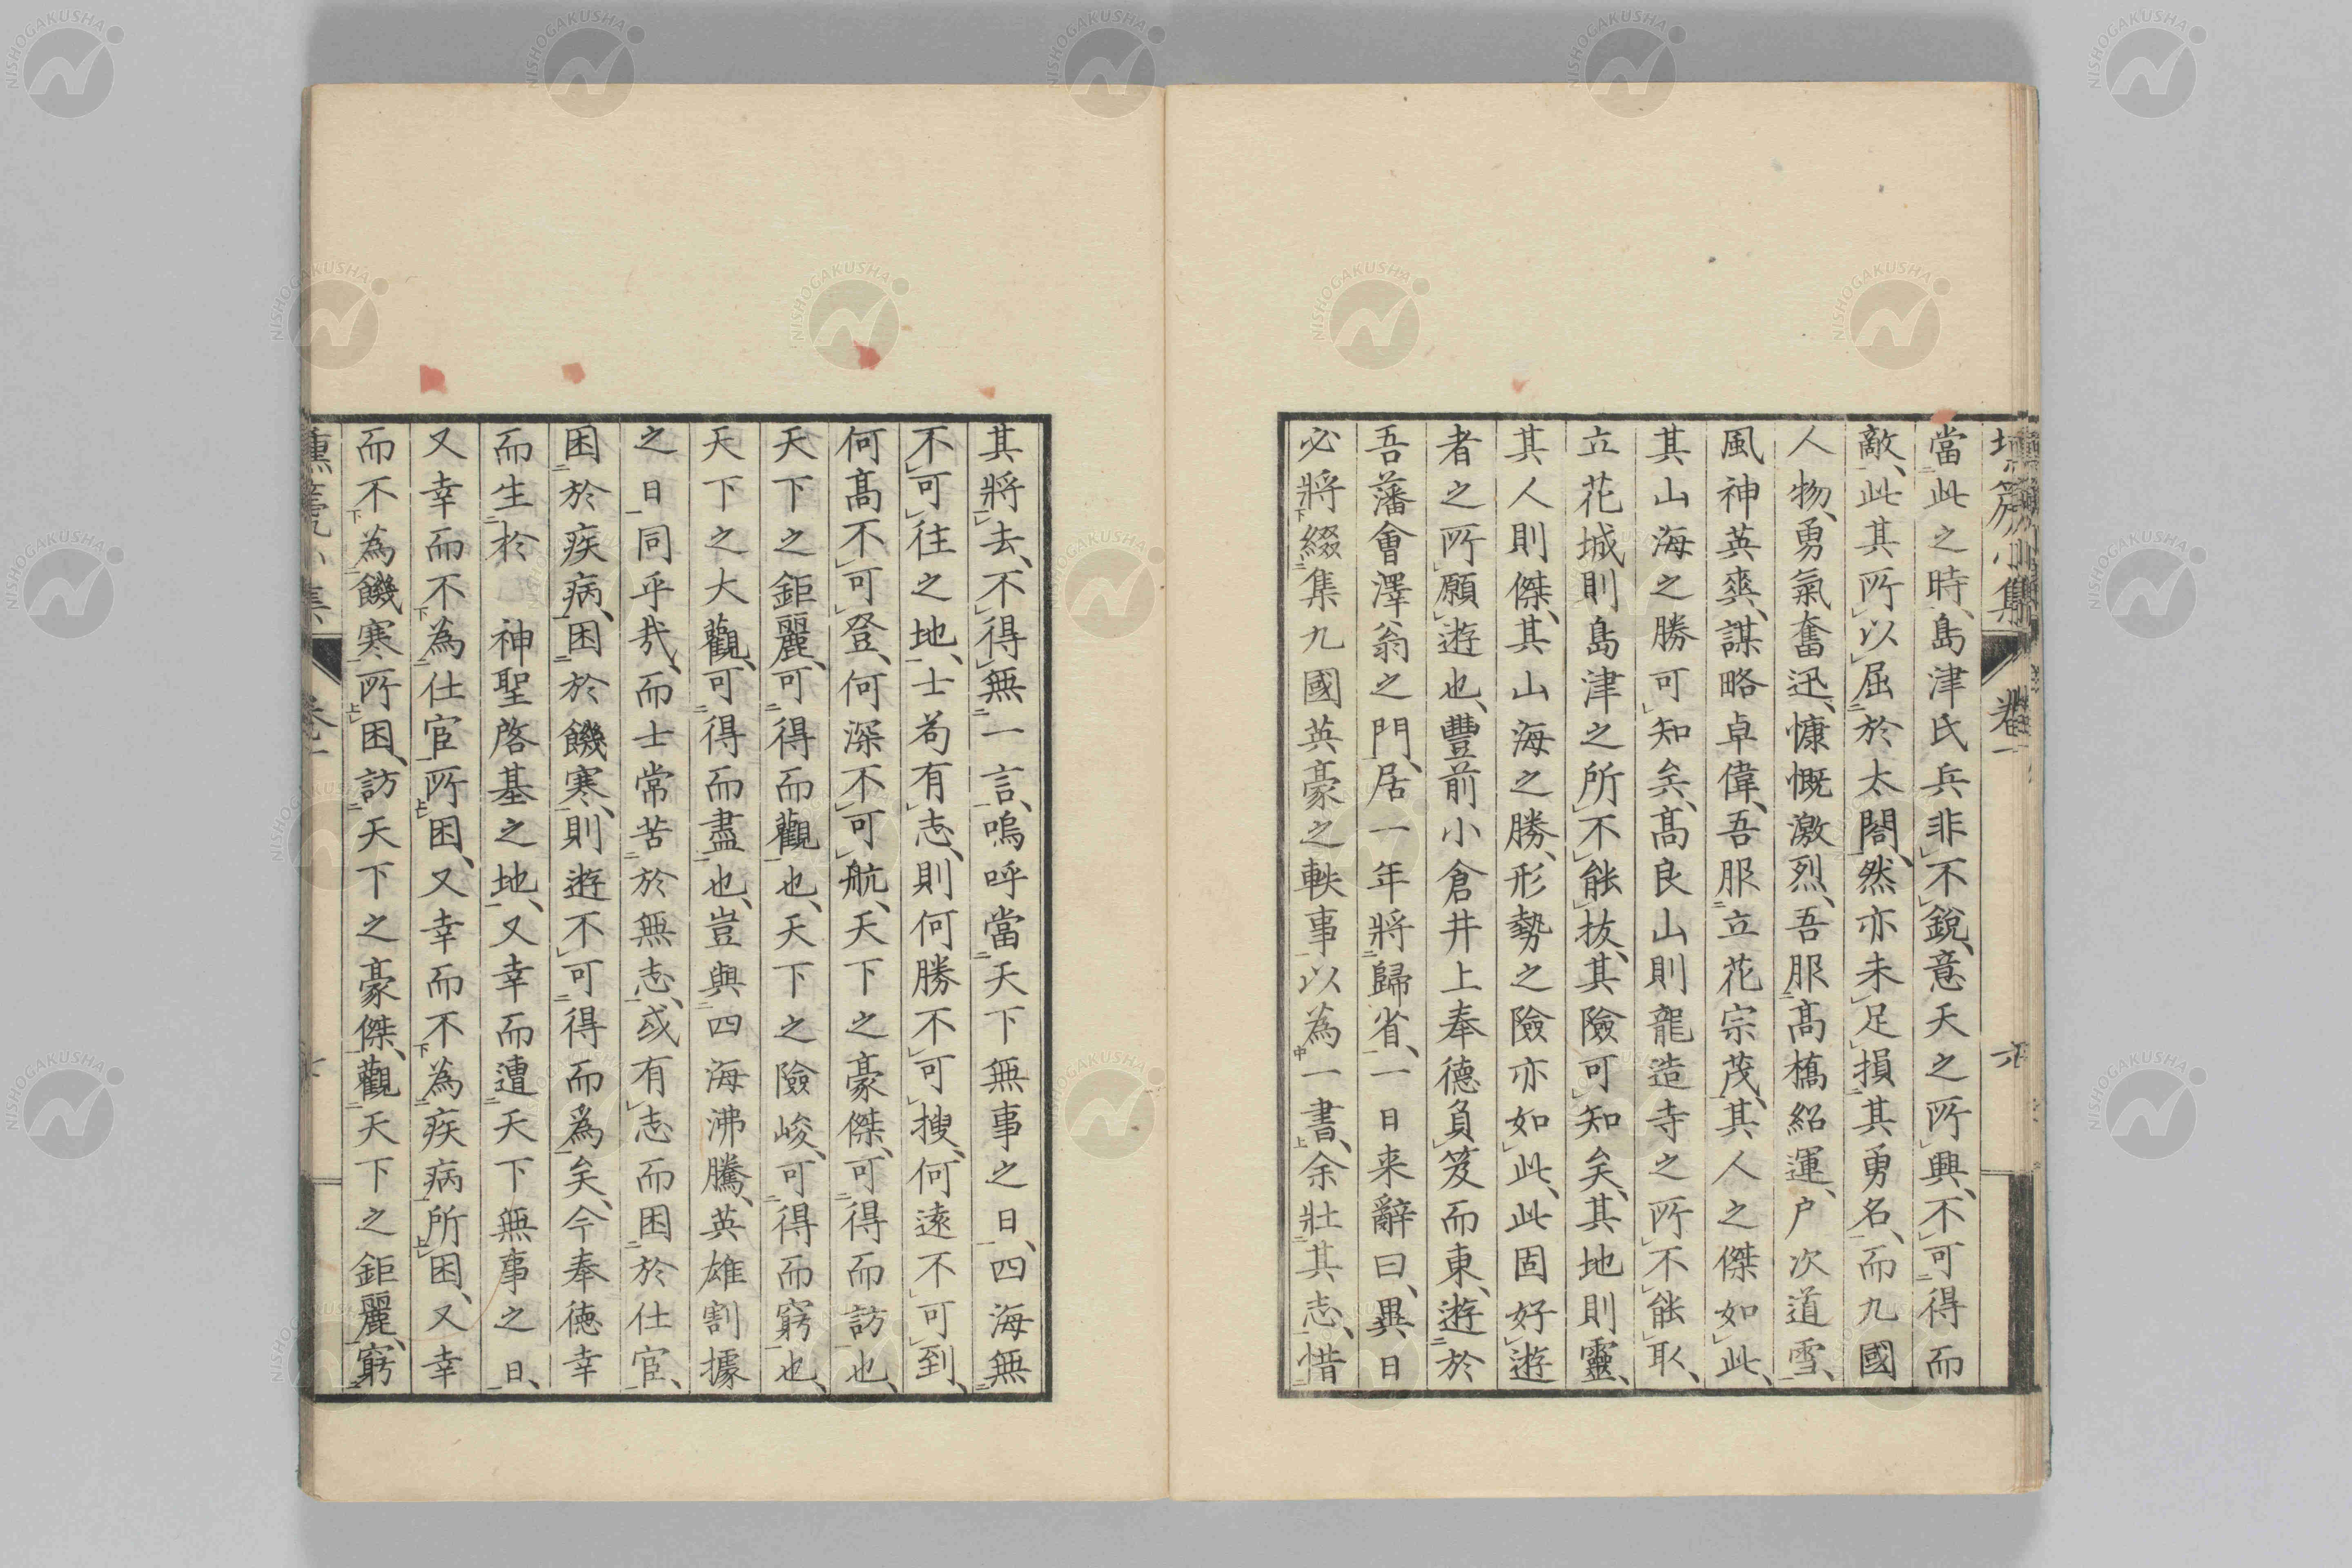 當此之時、島津氏兵非不銳、意天之所興、不可得而
敵、此其所以屈於太閤、然亦未足損其勇名、而九國
人物、勇氣奮迅、慷慨激烈、吾服高橋紹運、戶次道雪、
風神英爽、謀略卓偉、吾服立花宗茂、其人之傑如此、
其山海之勝可知矣、高良山則龍造寺之所不能取、
立花城則島津之所不能拔、其險可知矣、其地則靈、
其人則傑、其山海之勝、形勢之險亦如此、此固好遊
者之所願遊也、豐前小倉井上奉德負笈而東、遊於
吾藩會澤翁之門、居一年將歸省、一日来辭曰、異日
必將綴集九國英豪之軼事以為一書、余壯其志、惜
其將去、不得無一言、嗚呼當天下無事之日、四海無
不可往之地、士苟有志、則何勝不可搜、何遠不可到、
何高不可登、何深不可航、天下之豪傑、可得而訪也、
天下之鉅麗、可得而觀也、天下之險峻、可得而窮也、
天下之大觀、可得而盡也、豈與四海沸騰、英雄割據
之日同乎哉、而士常苦於無志、或有志而困於仕官、
困於疾病、困於饑寒、則遊不可得而爲矣、今奉徳幸
而生於 神聖啓基之地、又幸而遭天下無事之日、
又幸而不為仕官所困、又幸而不為疾病所困、又幸
而不為饑寒所困、訪天下之豪傑、觀天下之鉅麗、窮
卷一
NISHOGAKUSHA